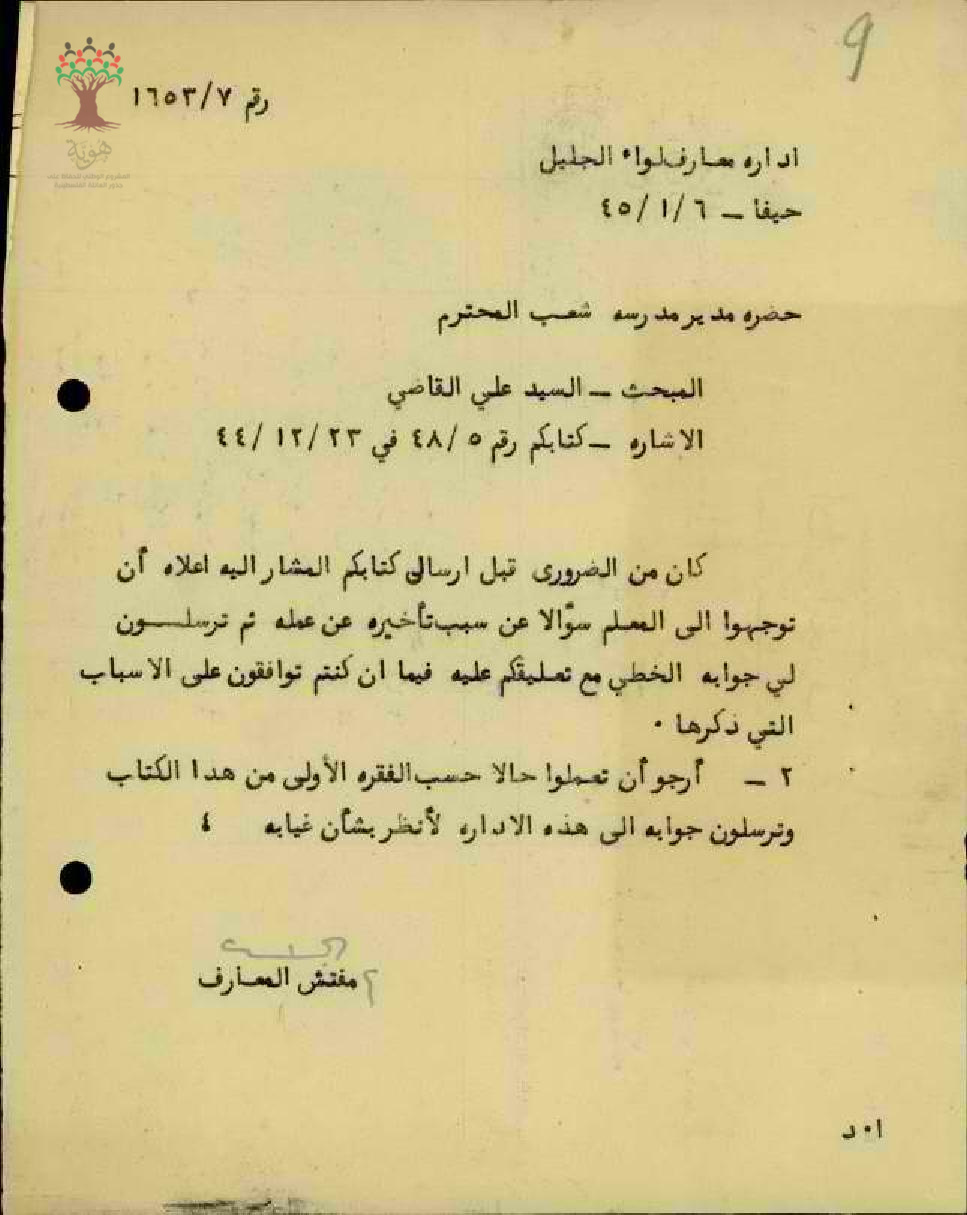 9
رقم ١٦٥٣/٧
هوية
اداره معارف لواء الجليل
حيفا – ٤٥/١/٦
حضره مدير مدرسه شعب المحترم
المبحث – السيد علي القاضي
الاشاره – كتابكم رقم ٤٨/٥ في ٤٤/١٢/٢٣
كان من الضرورى قبل ارسال كتابكم المشار اليه اعلاه أن
توجهوا الى المعلم سؤالا عن سبب تأخيره عن عمله ثم ترسلـــون
لي جوابه الخطي مع تعليقكم عليه فيما ان كنتم توافقون على الاسباب
التي ذكرها ٠
٢ – أرجو أن تعملوا حالا حسب الفقره الأولى من هدا الكتاب
وترسلون جوابه الى هذه الاداره لأنظر بشأن غيابه ٤
مفتش المعارف
ا٠د